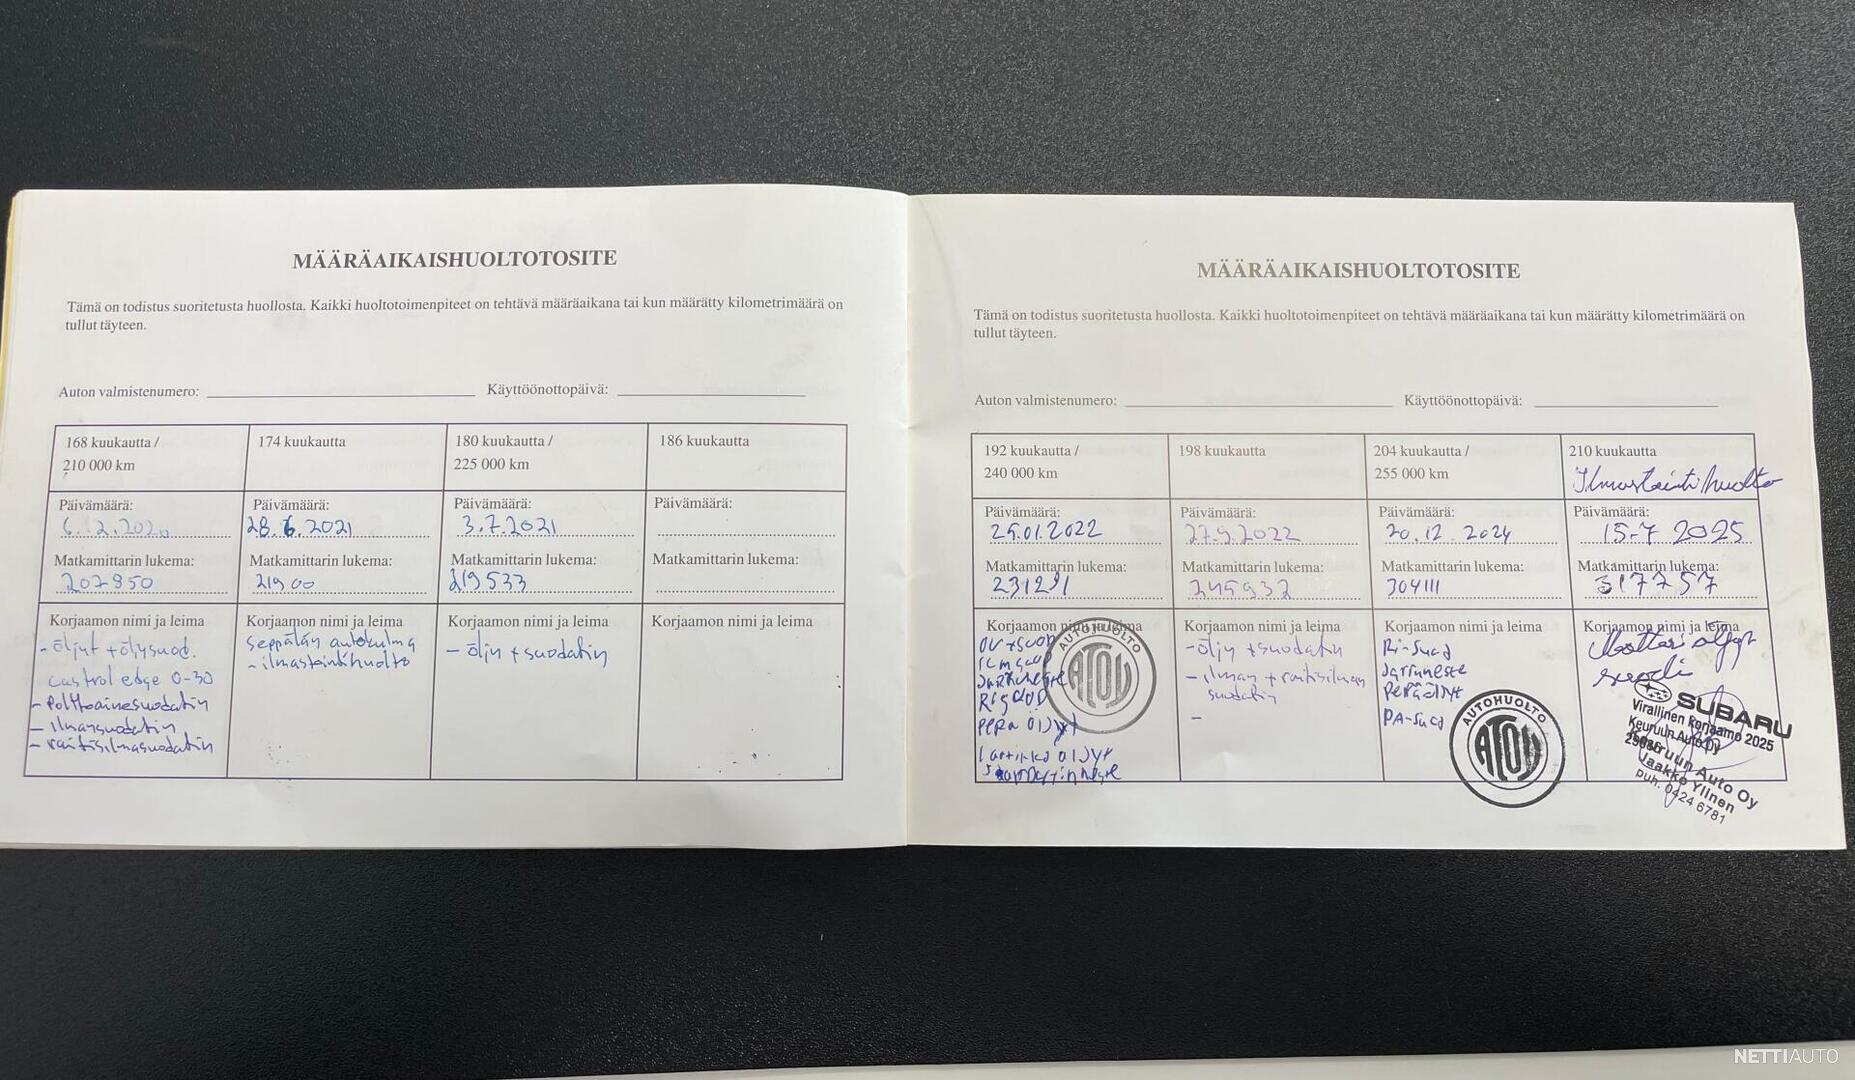 MÄÄRÄAIKAISHUOLTOTOSITE
Tämä on todistus suoritetusta huollosta. Kaikki huoltotoimenpiteet on tehtävä määräaikana tai kun määrätty kilometrimäärä on
tullut täyteen.
Auton valmistenumero: Käyttöönottopäivä:
168 kuukautta /
210 000 km
Päivämäärä:
6.2.2020
Matkamittarin lukema:
207850
Korjaamon nimi ja leima
- öljyt + öljysuod.
castrol edge 0-30
- Polttoainesuodatin
- ilmansuodatin
- raitisilmasuodatin
174 kuukautta
Päivämäärä:
28.6.2021
Matkamittarin lukema:
21900
Korjaamon nimi ja leima
seppälän autokulma
- ilmastointihuolto
180 kuukautta /
225 000 km
Päivämäärä:
3.7.2021
Matkamittarin lukema:
219533
Korjaamon nimi ja leima
- öljy + suodatin
186 kuukautta
Päivämäärä:
Matkamittarin lukema:
Korjaamon nimi ja leima
MÄÄRÄAIKAISHUOLTOTOSITE
Tämä on todistus suoritetusta huollosta. Kaikki huoltotoimenpiteet on tehtävä määräaikana tai kun määrätty kilometrimäärä on
tullut täyteen.
Auton valmistenumero: Käyttöönottopäivä:
192 kuukautta /
240 000 km
Päivämäärä:
25.01.2022
Matkamittarin lukema:
231291
Korjaamon nimi ja leima
PERÄ ÖLJYT
AUTOHUOLTO
ATOY
198 kuukautta
Päivämäärä:
27.9.2022
Matkamittarin lukema:
245932
Korjaamon nimi ja leima
- öljy + suodatin
- ilman + raitisilman
suodatin
-
204 kuukautta /
255 000 km
Päivämäärä:
20.12.2024
Matkamittarin lukema:
304111
Korjaamon nimi ja leima
Ri-suod
Jarruneste
Peräöljyt
PA-suod
AUTOHUOLTO
ATOY
210 kuukautta
Ilmastointihuolto
Päivämäärä:
15.7 2025
Matkamittarin lukema:
317757
Korjaamon nimi ja leima
Moottori öljyt
SUBARU
Virallinen Korjaamo 2025
Keuruun Auto Oy
Keuruun Auto Oy
Jaakko Ylinen
puh. 0424 6781
NETTIAUTO